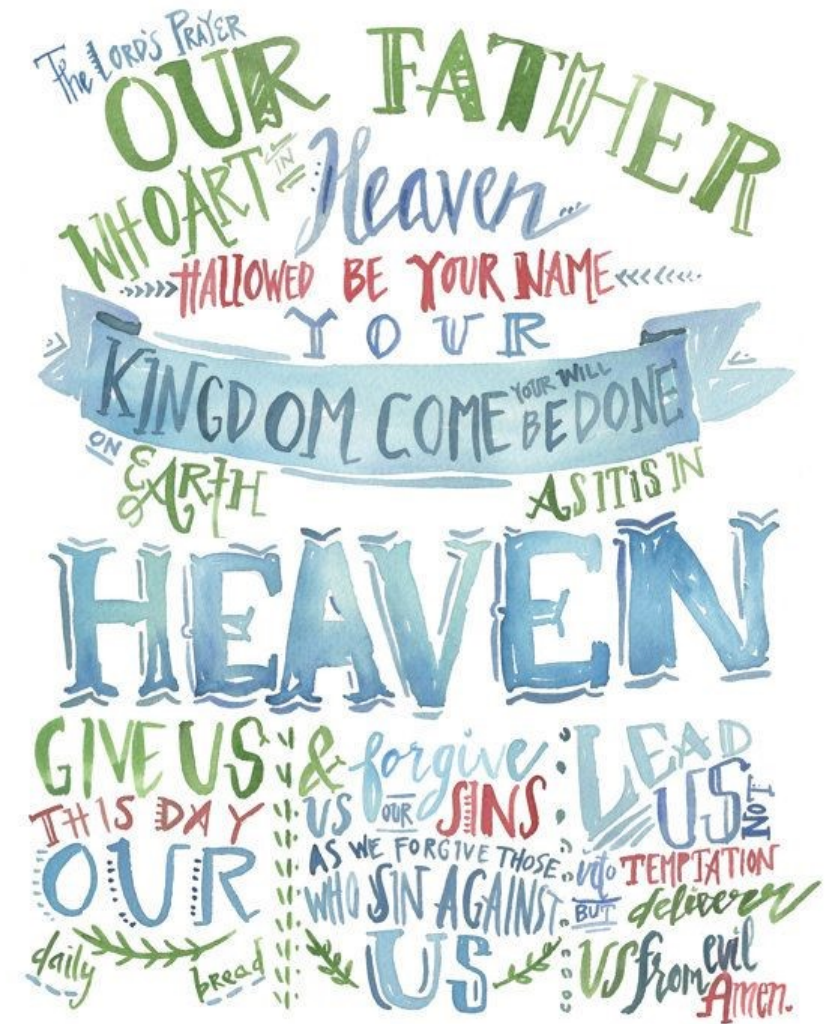 The LORD'S PRAYER
OUR FATHER
WHO ART IN Heaven
HALLOWED BE YOUR NAME
YOUR
KINGDOM COME YOUR WILL BE DONE
ON EARTH AS IT IS IN
HEAVEN
GIVE US
THIS DAY
OUR
daily bread
& forgive
US OUR SINS
AS WE FORGIVE THOSE
WHO SIN AGAINST
US
LEAD
US NOT
into TEMPTATION
BUT deliver
US from evil
Amen.